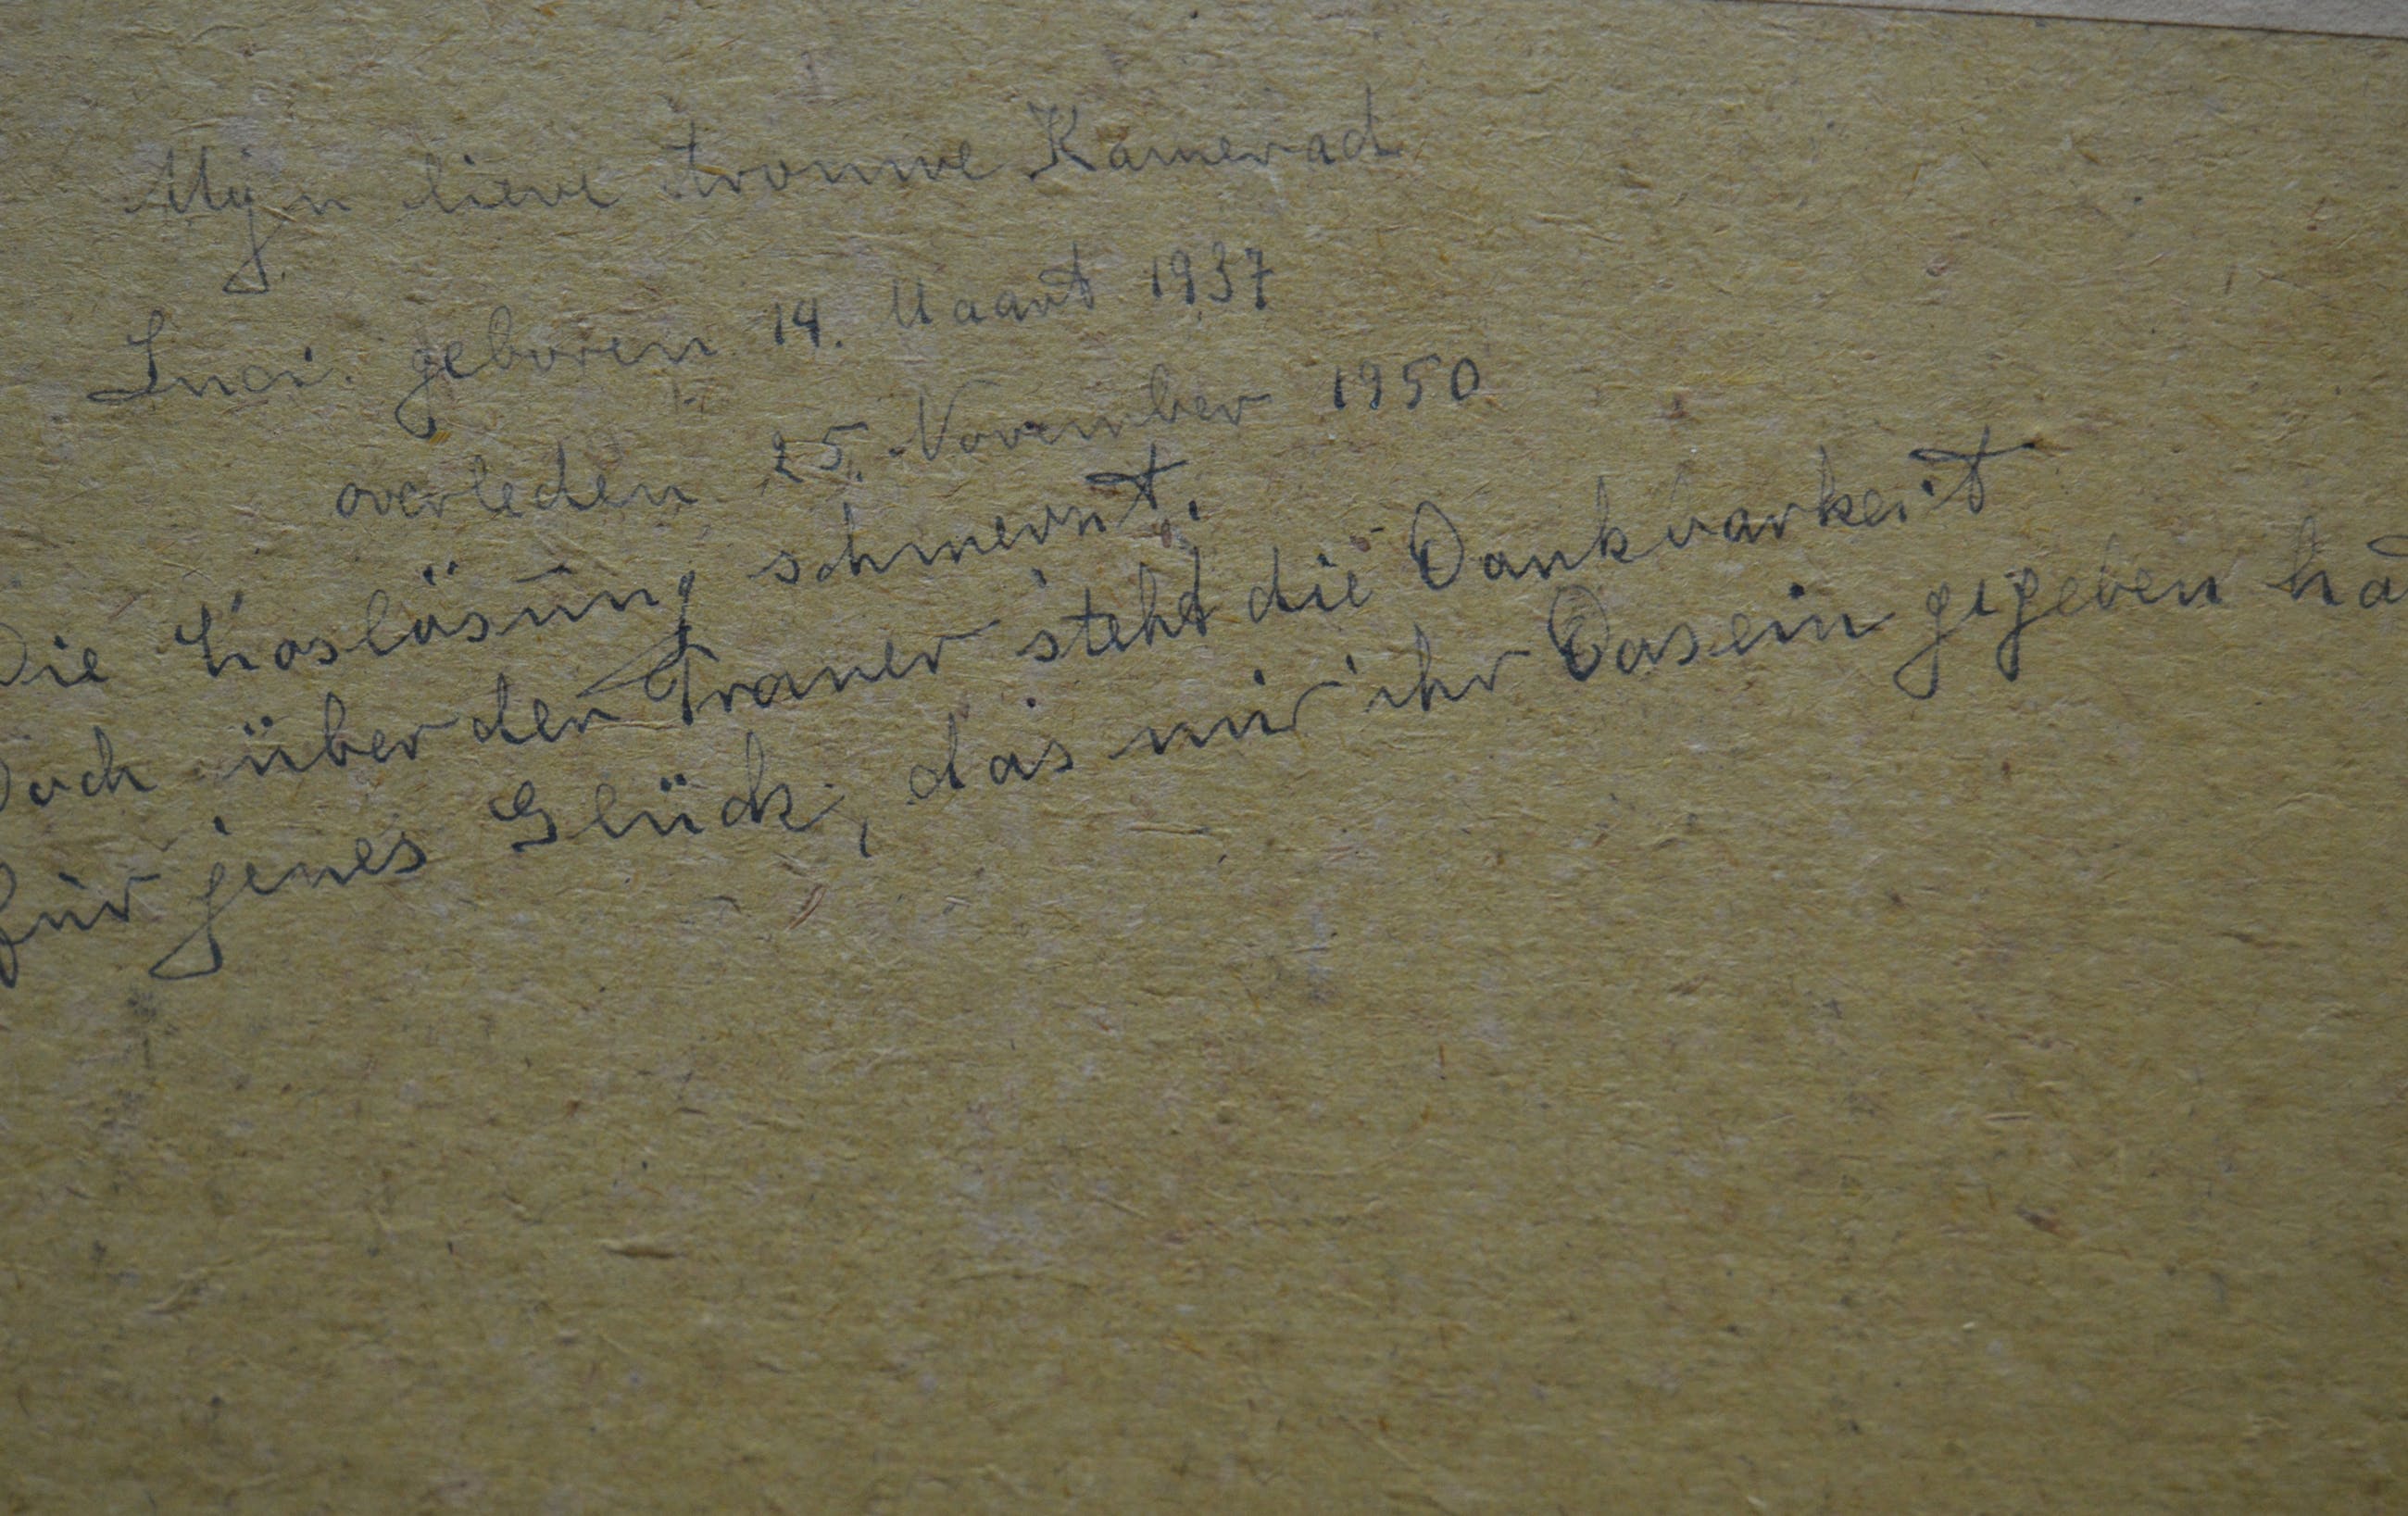 Mijn lieve trouwe Kamerad
Luci. geboren 14. Maart 1937
overleden 25. November 1950
Die Loslösung schmerzt.
Doch über den Trauer steht die Dankbarkeit
für jenes Glück, das mir ihr Dasein gegeben hat